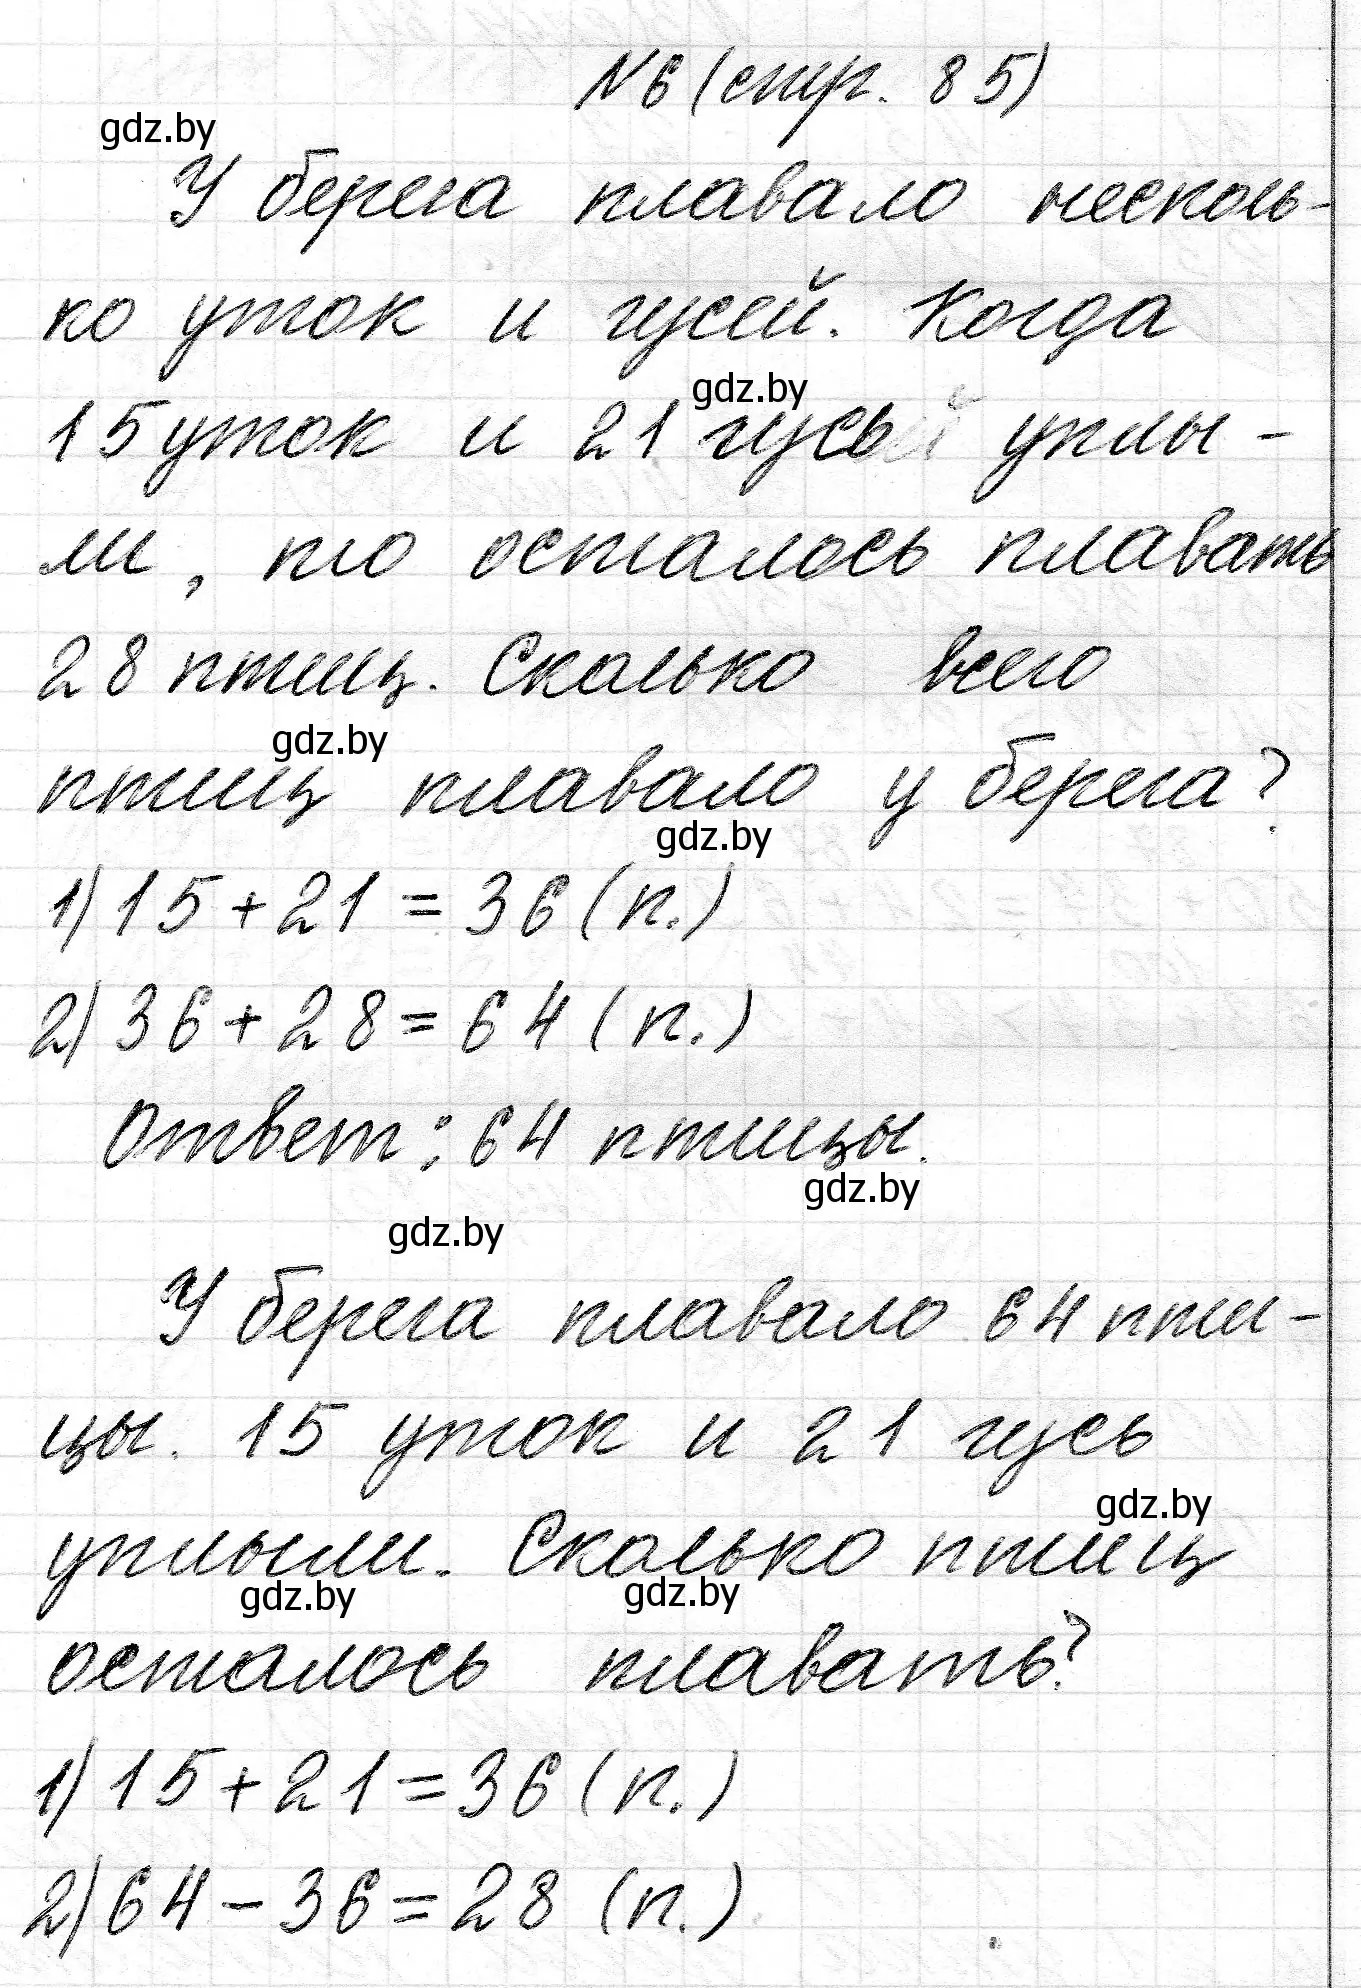 №6 (стр. 85)
gdz.by
У берега плавало несколь-
ко уток и гусей. Когда
gdz.by
15 уток и 21 гусь уплы-
ли, то осталось плавать
28 птиц. Сколько всего
gdz.by
птиц плавало у берега?
gdz.by
1) 15 + 21 = 36 (п.)
2) 36 + 28 = 64 (п.)
Ответ: 64 птицы.
gdz.by
gdz.by
У берега плавало 64 пти-
цы. 15 уток и 21 гусь
gdz.by
уплыли. Сколько птиц
gdz.by
gdz.by
осталось плавать?
1) 15 + 21 = 36 (п.)
2) 64 - 36 = 28 (п.)